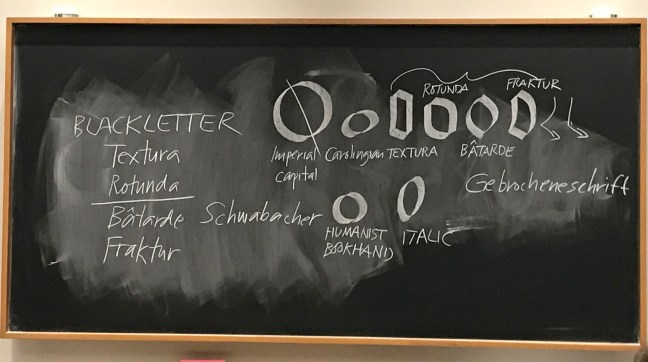 BLACKLETTER
Textura
Rotunda
Bâtarde Schwabacher
Fraktur
ROTUNDA FRAKTUR
Imperial Carolingian TEXTURA BÂTARDE
Capital
Gebrocheneschrift
HUMANIST ITALIC
BOOKHAND